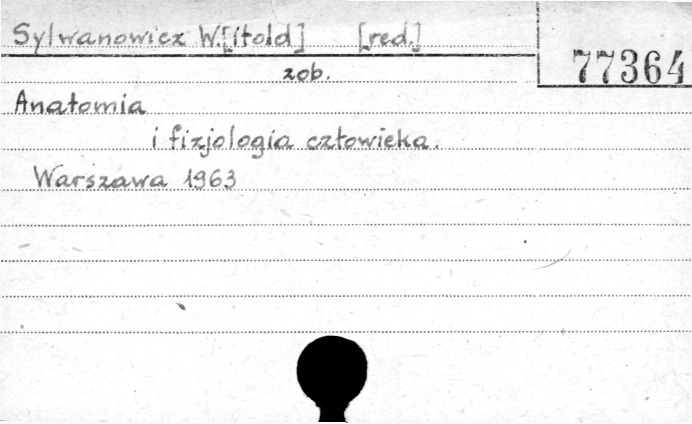 Sylwanowicz W.[itold] [red.]
77364
zob.
Anatomia
i fizjologia człowieka.
Warszawa 1963